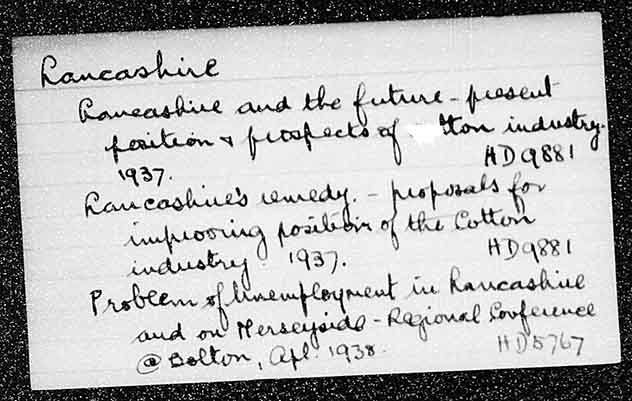 Lancashire
Lancashire and the future - present
position & prospects of tton industry.
1937. HD9881
Lancashire's remedy. - proposals for
improving position of the Cotton
industry. 1937. HD9881
Problem of Unemployment in Lancashire
and on Merseyside - Regional Conference
@ Bolton, Apl. 1938. HD5767